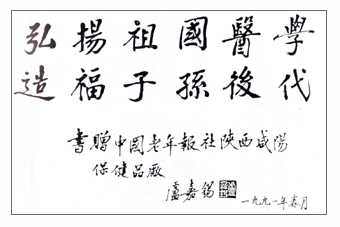 弘揚祖國醫學
造福子孫後代
書贈中国老年報社陝西咸陽
保健品廠
盧嘉錫
一九九一年春月